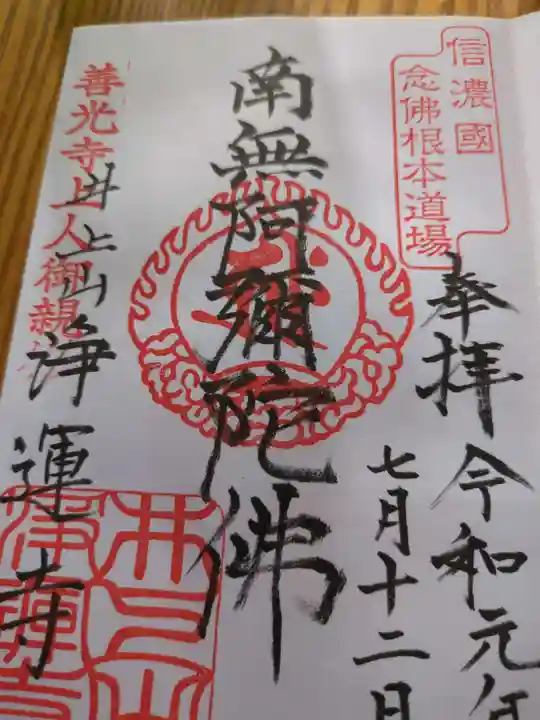 信濃國
念佛根本道場
奉拝 令和元年
七月十二日
南無阿彌陀佛
善光寺上人御親
井上山 浄運寺